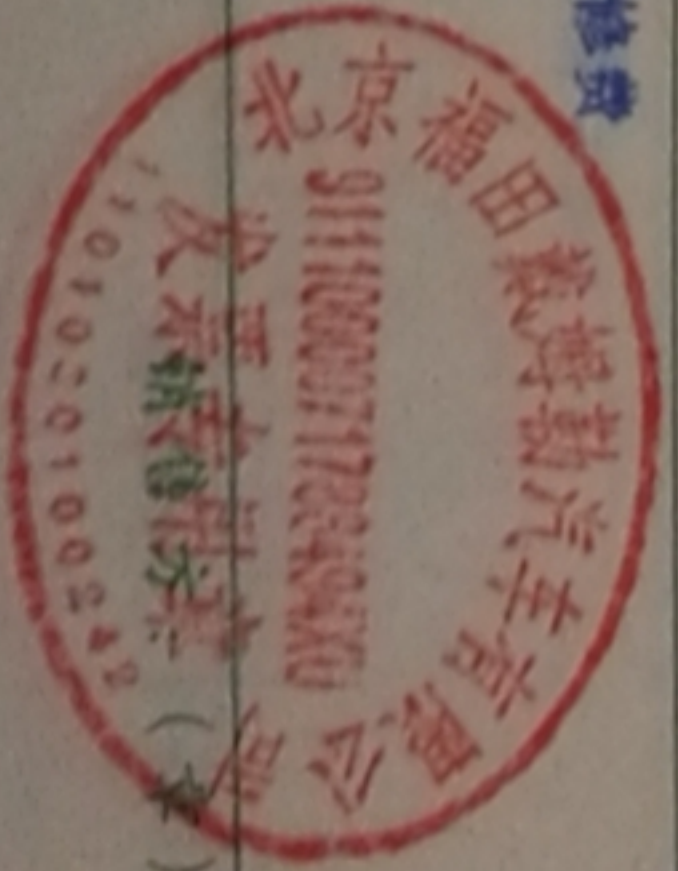 修费
北京福田戴姆勒汽车有限公司
发票专用章
1101020100242
销售方:(章)